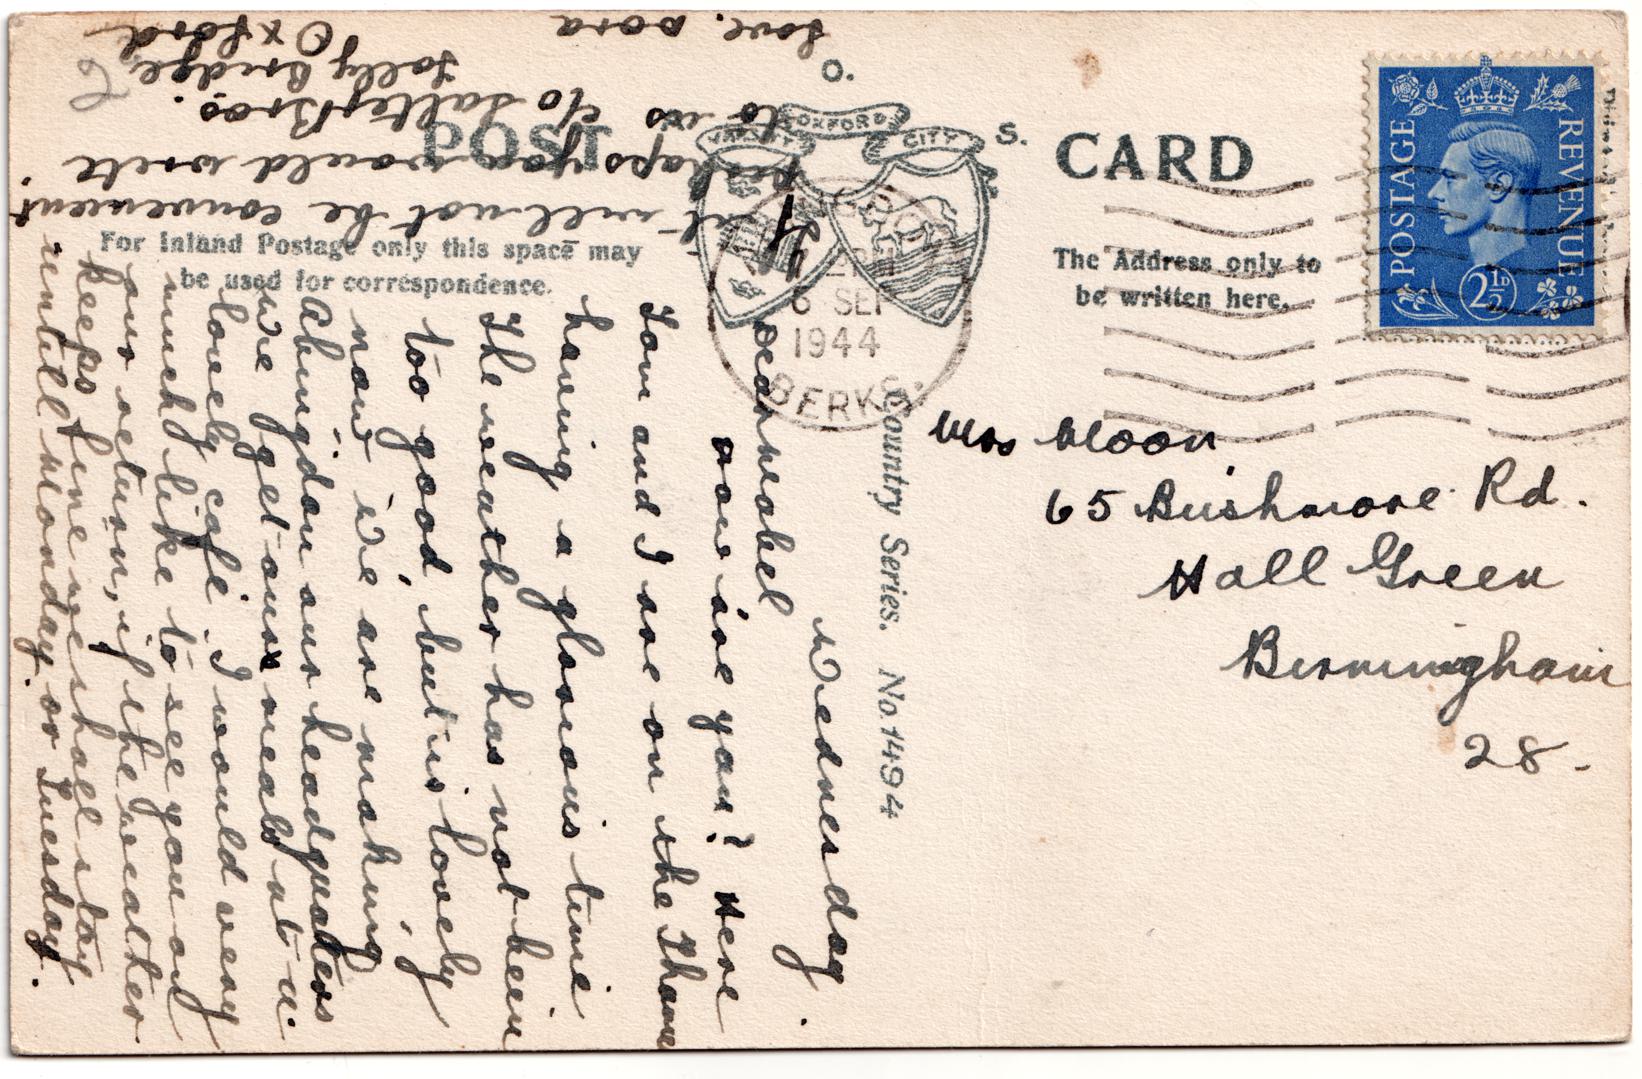 POST CARD
O.
S.
VARSITY OXFORD CITY
For Inland Postage only this space may
be used for correspondence.
The Address only to
be written here.
POSTAGE REVENUE
2½D
2 PM
6 SEP
1944
BERKS.
Country Series. No. 1494
Mrs Moon
65 Bushmore Rd.
Hall Green
Birmingham
28.
Wednesday.
Dear Mabel
How are you? Here
Tom and I are on the Thames
having a glorious time
The weather has not been
too good, but is lovely
now. We are making
Abingdon our headquaters
We get our meals at a
lovely cafe. I would very
much like to see you on
our return, if the weather
keeps fine we shall stay
untill Monday or Tuesday.
If it will not be convenient
perhaps you would write
to us c/o Salter Bros.
Folly Bridge
Oxford
Love. Dora